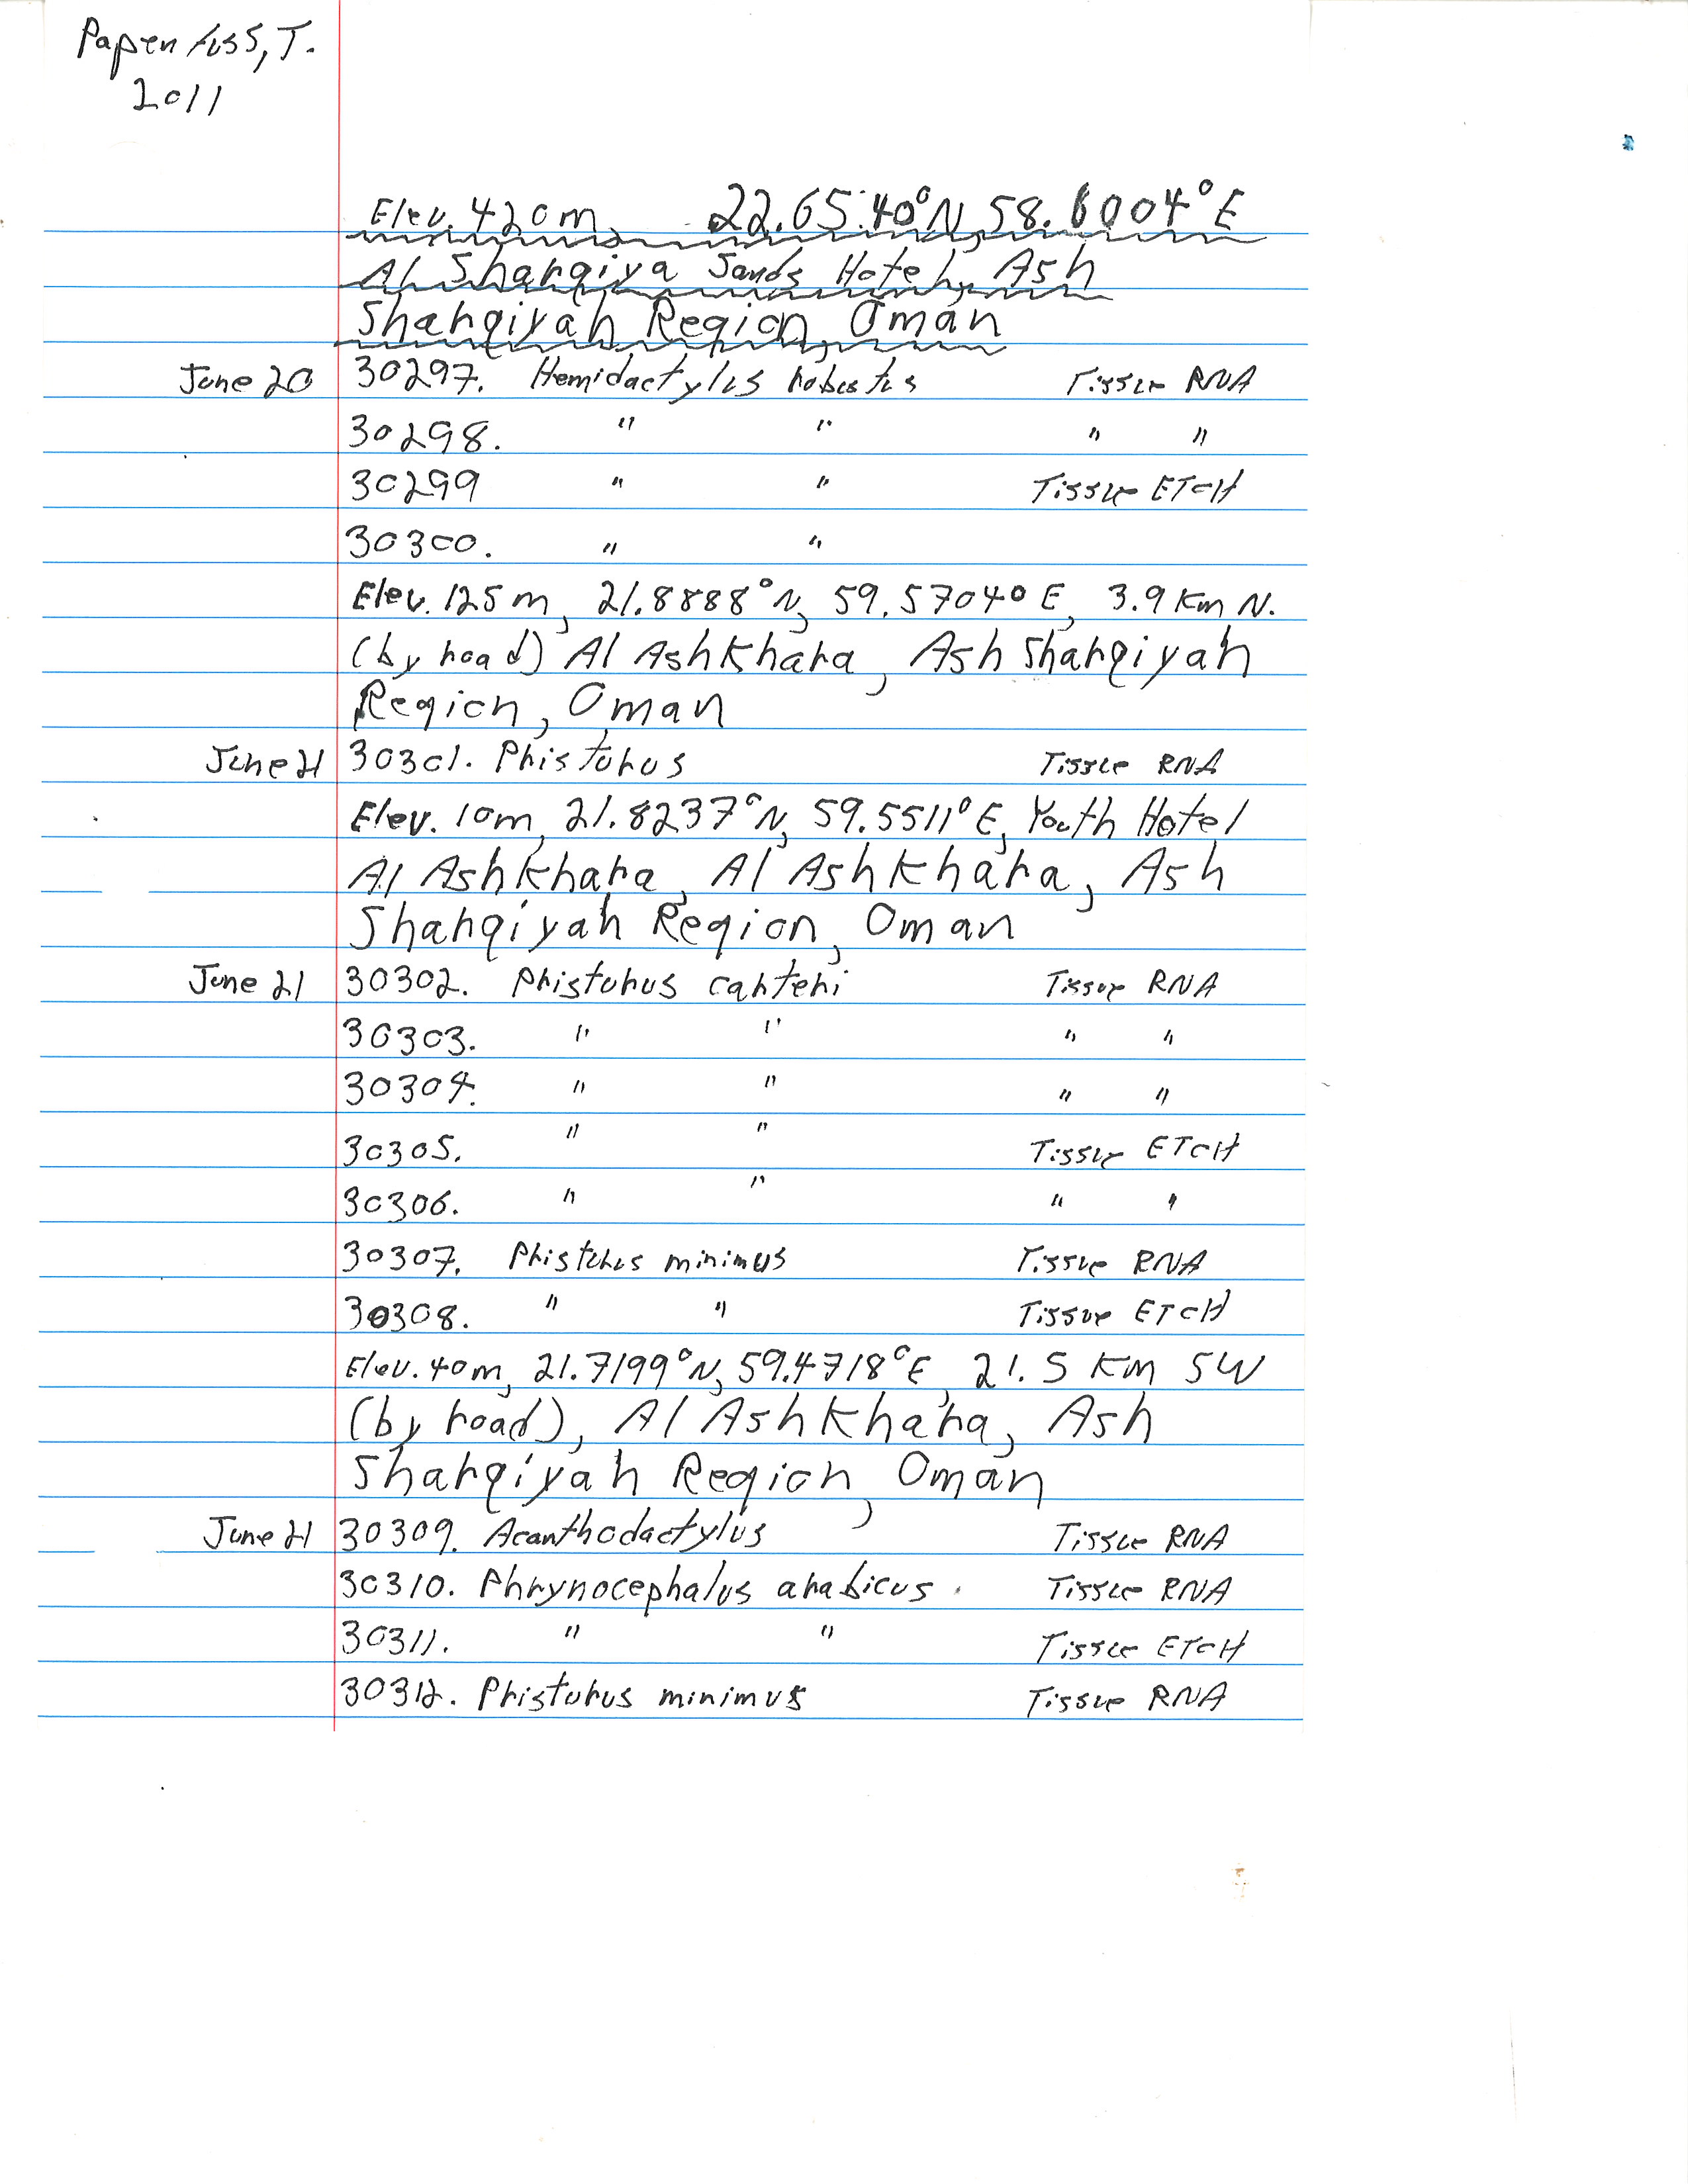 Papenfuss, T.
2011
Elev. 420m, 22.6540°N, 58.6004°E
Al Sharqiya Sands Hotel, Ash
Sharqiyah Region, Oman
June 20 30297. Hemidactylus robustus Tissue RNA
30298. " " " "
30299 " " Tissue ETOH
30300. " "
Elev. 125m, 21.8888°N, 59.5704°E, 3.9 Km N.
(by road) Al Ashkhara, Ash Sharqiyah
Region, Oman
June 21 30301. Pristurus Tissue RNA
Elev. 10m, 21.8237°N, 59.5511°E, Youth Hotel
Al Ashkhara, Al Ashkhara, Ash
Sharqiyah Region, Oman
June 21 30302. Pristurus carteri Tissue RNA
30303. " " " "
30304. " " " "
30305. " " Tissue ETOH
30306. " " " "
30307. Pristurus minimus Tissue RNA
30308. " " Tissue ETOH
Elev. 40m, 21.7199°N, 59.4718°E, 21.5 Km SW
(by road), Al Ashkhara, Ash
Sharqiyah Region, Oman
June 21 30309. Acanthodactylus Tissue RNA
30310. Phrynocephalus arabicus. Tissue RNA
30311. " " Tissue ETOH
30312. Pristurus minimus Tissue RNA